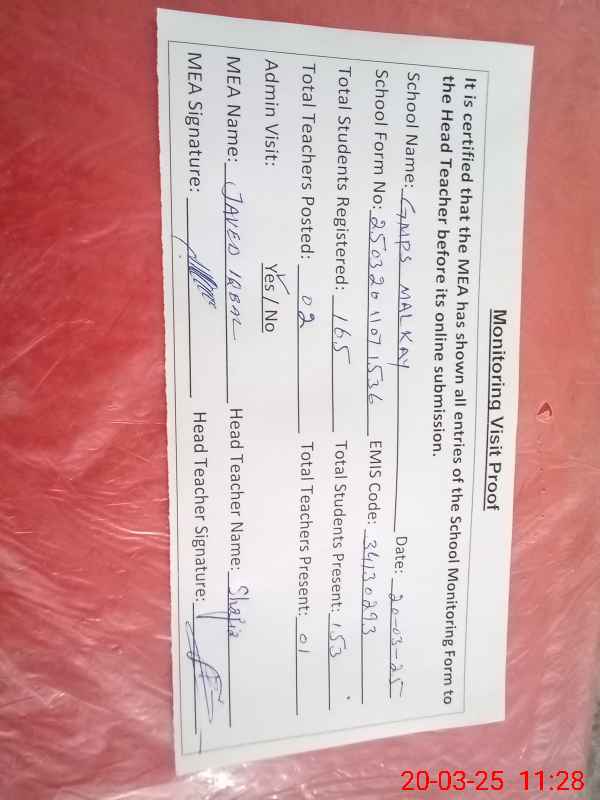 Monitoring Visit Proof
It is certified that the MEA has shown all entries of the School Monitoring Form to
the Head Teacher before its online submission.
School Name: GMPS MALKAY Date: 20-03-25
School Form No: 25032011071536 EMIS Code: 34130293
Total Students Registered: 165 Total Students Present: 153
Total Teachers Posted: 02 Total Teachers Present: 01
Admin Visit: Yes / No
MEA Name: JAVED IQBAL Head Teacher Name: Shazia
MEA Signature: Head Teacher Signature:
20-03-25 11:28